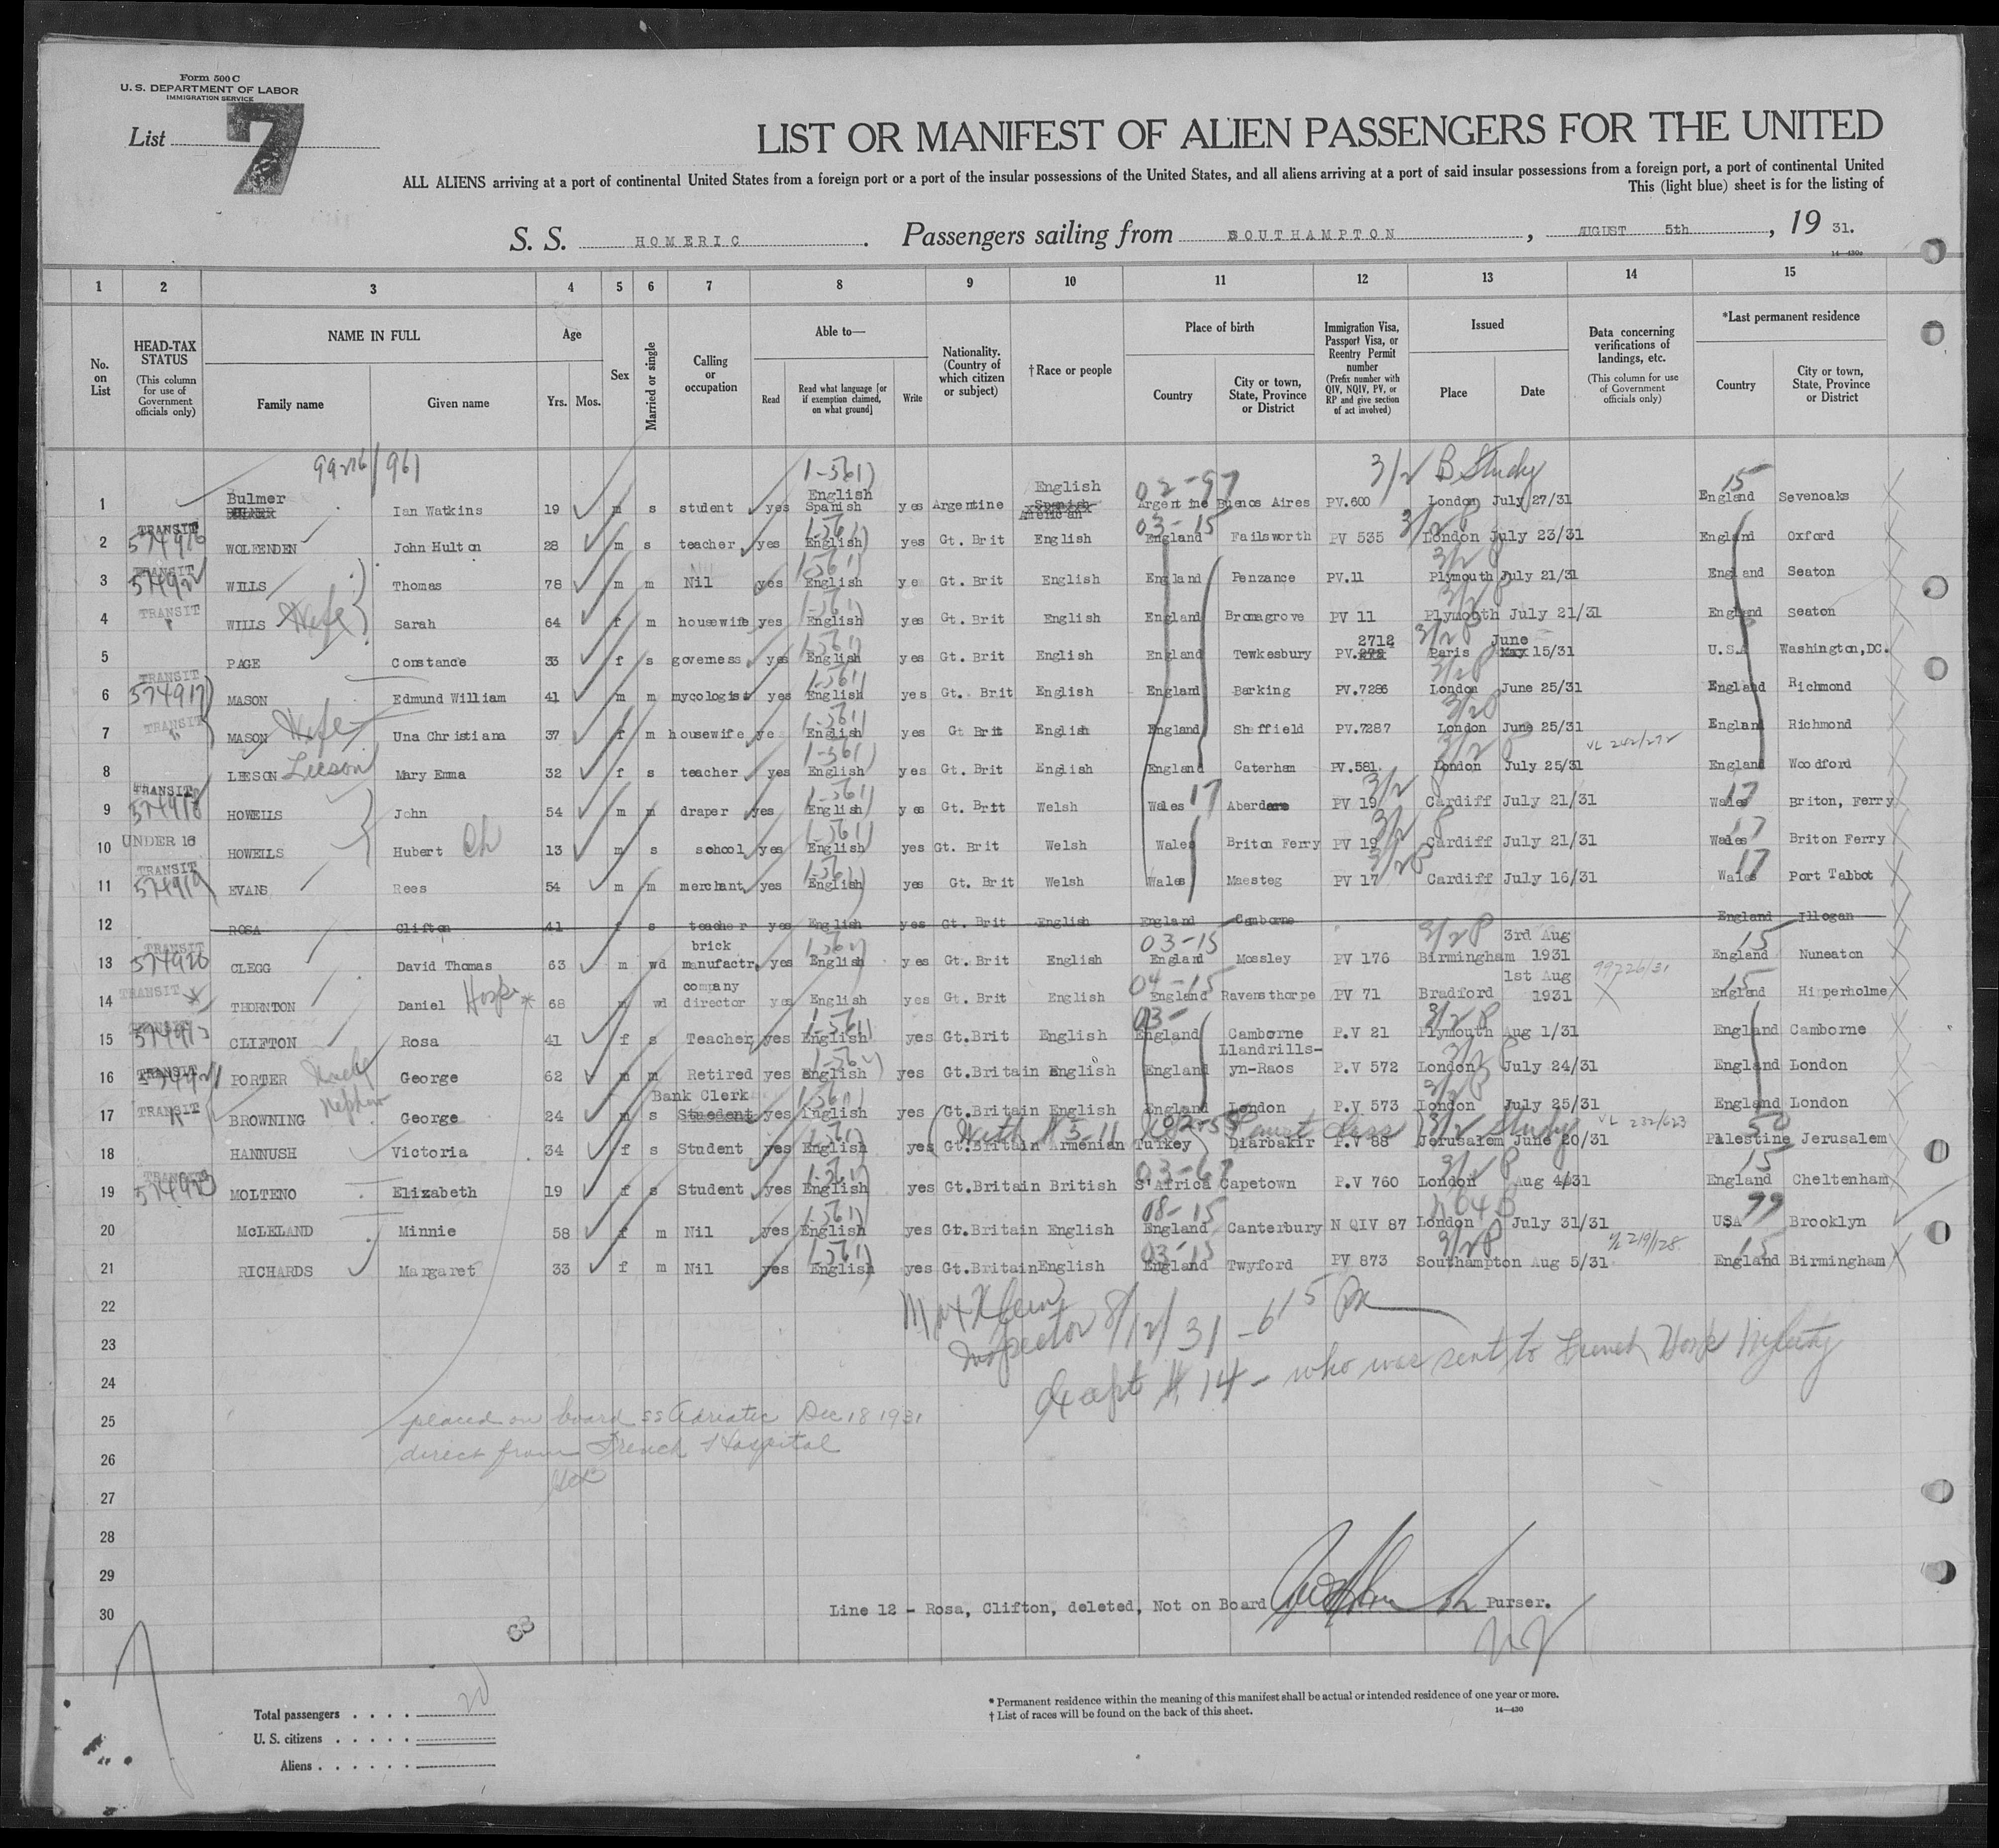 Form 500 C
U. S. DEPARTMENT OF LABOR
IMMIGRATION SERVICE
List 7
LIST OR MANIFEST OF ALIEN PASSENGERS FOR THE UNITED
ALL ALIENS arriving at a port of continental United States from a foreign port or a port of the insular possessions of the United States, and all aliens arriving at a port of said insular possessions from a foreign port, a port of continental United
This (light blue) sheet is for the listing of
S. S. HOMERIC. Passengers sailing from SOUTHAMPTON, AUGUST 5th, 19 31.
14—430a
1 2 3 4 5 6 7 8 9 10 11 12 13 14 15
No. on List
HEAD-TAX STATUS (This column for use of Government officials only)
NAME IN FULL Family name Given name
Age Yrs. Mos.
Sex
Married or single
Calling or occupation
Able to— Read Read what language [or if exemption claimed, on what ground] Write
Nationality. (Country of which citizen or subject)
†Race or people
Place of birth Country City or town, State, Province or District
Immigration Visa, Passport Visa, or Reentry Permit number (Prefix number with QIV, NQIV, PV, or RP and give section of act involved)
Issued Place Date
Data concerning verifications of landings, etc. (This column for use of Government officials only)
*Last permanent residence Country City or town, State, Province or District
99276/961 1-561) 3/2 B Study
1 Bulmer Ian Watkins 19 m s student yes English Spanish yes Argentine English Argentine Buenos Aires PV.600 London July 27/31 England Sevenoaks 15
02-97
2 TRANSIT 574916 WOLFENDEN John Hulton 28 m s teacher yes English yes Gt. Brit English England Failsworth PV 535 London July 23/31 England Oxford
03-15
3 TRANSIT WILLS Thomas 78 m m Nil yes English ye Gt. Brit English England Penzance PV.11 Plymouth July 21/31 England Seaton
4 TRANSIT " WILLS Wife Sarah 64 f m housewife yes English yes Gt. Brit English England Bromsgrove PV 11 Plymouth July 21/31 England Seaton
5 PAGE Constance 33 f s governess yes English yes Gt. Brit English England Tewkesbury PV.272 2712 Paris May June 15/31 U.S.A Washington,DC.
6 TRANSIT 574917 MASON Edmund William 41 m m mycologist yes English yes Gt. Brit English England Barking PV.7286 London June 25/31 England Richmond
7 TRANSIT " MASON Wife Una Christiana 37 f m housewife ye English yes Gt Brit English England Sheffield PV.7287 London June 25/31 England Richmond
8 LEESON Leeson Mary Emma 32 f s teacher yes English yes Gt. Brit English England Caterham PV.581 London July 25/31 VL 242/272 England Woodford
9 TRANSIT 574918 HOWELLS John 54 m m draper yes English yes Gt. Britt Welsh Wales 17 Aberdare PV 19 Cardiff July 21/31 Wales 17 Briton, Ferry
10 UNDER 16 HOWELLS Hubert Ch 13 m s school yes English yes Gt. Brit Welsh Wales Briton Ferry PV 19 Cardiff July 21/31 Wales 17 Briton Ferry
11 TRANSIT 574919 EVANS Rees 54 m m merchant yes English yes Gt. Brit Welsh Wales Maesteg PV 17 Cardiff July 16/31 Wales 17 Port Talbot
12 ROSA Clifton 41 f s teacher yes English yes Gt. Brit English England Camborne England Illogan
13 TRANSIT 574920 CLEGG David Thomas 63 m wd brick manufactr. yes English yes Gt. Brit English England 03-15 Mossley PV 176 Birmingham 3rd Aug 1931 England 15 Nuneaton
14 TRANSIT THORNTON Daniel Hosp * 68 m wd company director yes English yes Gt. Brit English England 04-15 Ravensthorpe PV 71 Bradford 1st Aug 1931 99726/31 England 15 Hipperholme
15 TRANSIT CLIFTON Rosa 41 f s Teacher yes English yes Gt.Brit English England 03- Camborne P.V 21 Plymouth Aug 1/31 England Camborne
16 TRANSIT PORTER Uncle George 62 m m Retired yes English yes Gt.Britain English England Llandrills-yn-Raos P.V 572 London July 24/31 England London
17 TRANSIT " BROWNING Nephew George 24 m s Student Bank Clerk yes English yes Gt.Britain English England London P.V 573 London July 25/31 England London
18 HANNUSH Victoria 34 f s Student yes English yes Gt.Britain Armenian Turkey Diarbakir P.V 88 Jerusalem June 20/31 VL 232/623 Palestine 50 Jerusalem
19 TRANSIT MOLTENO Elizabeth 19 f s Student yes English yes Gt.Britain British S'Africa 03-67 Capetown P.V 760 London Aug 4/31 England 15 Cheltenham
20 McLELAND Minnie 58 f m Nil yes English yes Gt.Britain English England 08-15 Canterbury N QIV 87 London July 31/31 USA 99 Brooklyn
21 RICHARDS Margaret 33 f m Nil yes English yes Gt.Britain English England 03-15 Twyford PV 873 Southampton Aug 5/31 VL 219/128 England 15 Birmingham
22 Max Klein
23 Inspector 8/12/31 - 6 15 PM
24 Except # 14 - who was sent to French Hosp
25 placed on board SS Adriatic Dec 18 1931
26 direct from French Hospital
27
28
29
30 Line 12 - Rosa, Clifton, deleted, Not on Board Purser.
NY
Total passengers . . . . 20
U. S. citizens . . . . .
Aliens . . . . . .
* Permanent residence within the meaning of this manifest shall be actual or intended residence of one year or more.
† List of races will be found on the back of this sheet. 14—430